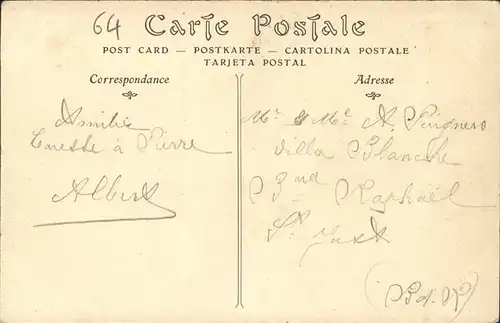 64
Carte Postale
POST CARD — POSTKARTE — CARTOLINA POSTALE
TARJETA POSTAL
Correspondance
Amitiés
à Pierre
Albert
Adresse
Mr & Me A.
Villa Blanche
Raphaël
St Just
(P.d.D)